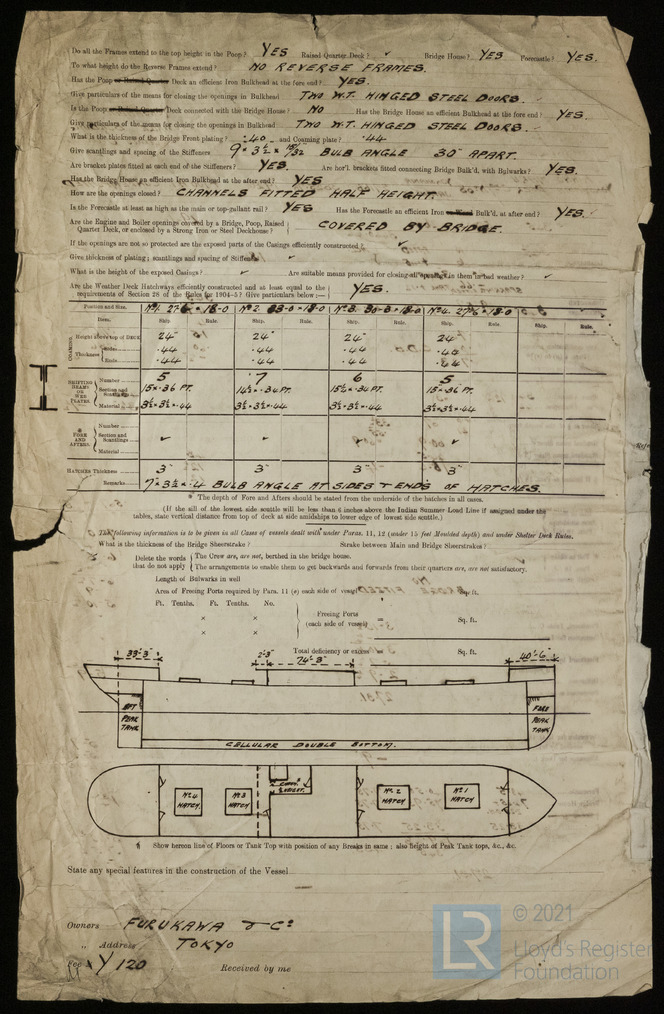 Do all the Frames extend to the top height in the Poop? YES Raised Quarter Deck? ✓ Bridge House? YES Forecastle? YES.
To what height do the Reverse Frames extend? NO REVERSE FRAMES.
Has the Poop or Raised Quarter Deck an efficient Iron Bulkhead at the fore end? YES.
Give particulars of the means for closing the openings in Bulkhead TWO W.T. HINGED STEEL DOORS.
Is the Poop or Raised Quarter Deck connected with the Bridge House? NO Has the Bridge House an efficient Bulkhead at the fore end? YES.
Give particulars of the means for closing the openings in Bulkhead TWO W.T. HINGED STEEL DOORS.
What is the thickness of the Bridge Front plating? .40 and Coaming plate? .44
Give scantlings and spacing of the Stiffeners 9" × 3½ × BULB ANGLE 30" APART.
Are bracket plates fitted at each end of the Stiffeners? YES. Are hor'l. brackets fitted connecting Bridge Bulk'd. with Bulwarks? YES.
Has the Bridge House an efficient Iron Bulkhead at the after end? YES
How are the openings closed? CHANNELS FITTED HALF HEIGHT.
Is the Forecastle at least as high as the main or top-gallant rail? YES Has the Forecastle an efficient Iron or Wood Bulk'd. at after end? YES.
Are the Engine and Boiler openings covered by a Bridge, Poop, Raised Quarter Deck, or enclosed by a Strong Iron or Steel Deckhouse? COVERED BY BRIDGE.
If the openings are not so protected are the exposed parts of the Casings efficiently constructed? ✓
Give thickness of plating; scantlings and spacing of Stiffeners ✓
What is the height of the exposed Casings? ✓ Are suitable means provided for closing all openings in them in bad weather? ✓
Are the Weather Deck Hatchways efficiently constructed and at least equal to the requirements of Section 28 of the Rules for 1904-5? Give particulars below:— YES.
Position and Size. Nº1. 27-6 × 18-0 Nº2. 33-0 × 18-0 Nº3. 30-3 × 18-0 Nº4. 27-6 × 18-0
Item. Ship. Rule. Ship. Rule. Ship. Rule. Ship. Rule. Ship. Rule.
COAMING. Height above top of DECK 24" 24" 24" 24"
Thickness Sides .44 .44 .44 .44
Ends .44 .44 .44 .44
SHIFTING BEAMS OR WEB PLATES Number 5 7 6 5
Section and Scantlings 15 × .36 PT. 14½ × .34 PT. 15½ × .34 PT. 15 × .36 PT.
Material 3½×3½×.44 3½×3½×.44 3½×3½×.44 3½×3½×.44
* FORE AND AFTERS. Number
Section and Scantlings ✓ ✓ ✓ ✓
Material
HATCHES Thickness 3" 3" 3" 3"
Remarks 7" × 3½ × .4 BULB ANGLE AT SIDES & ENDS OF HATCHES.
* The depth of Fore and Afters should be stated from the underside of the hatches in all cases.
(If the sill of the lowest side scuttle will be less than 6 inches above the Indian Summer Load Line if assigned under the
tables, state vertical distance from top of deck at side amidships to lower edge of lowest side scuttle.)
The following information is to be given in all Cases of vessels dealt with under Paras. 11, 12 (under 15 feet Moulded depth) and under Shelter Deck Rules.
What is the thickness of the Bridge Sheerstrake? Strake between Main and Bridge Sheerstrakes?
Delete the words that do not apply { The Crew are, are not, berthed in the bridge house.
The arrangements to enable them to get backwards and forwards from their quarters are, are not satisfactory.
Length of Bulwarks in well
Area of Freeing Ports required by Para. 11 (e) each side of vessel Sq. ft.
Ft. Tenths. Ft. Tenths. No.
× × Freeing Ports (each side of vessel) = Sq. ft.
× ×
Total deficiency or excess = Sq. ft.
33'-3" 2'-3" 74'-3" 40'-6"
AFT PEAK TANK FORE PEAK TANK
CELLULAR DOUBLE BOTTOM.
Nº4 HATCH Nº3 HATCH Nº2 HATCH Nº1 HATCH
Show hereon line of Floors or Tank Top with position of any Breaks in same; also height of Peak Tank tops, &c., &c.
State any special features in the construction of the Vessel
Owners FURUKAWA & Cº
„ Address TOKYO
Fee Y 120 Received by me
LR © 2021
Lloyd's Register
Foundation